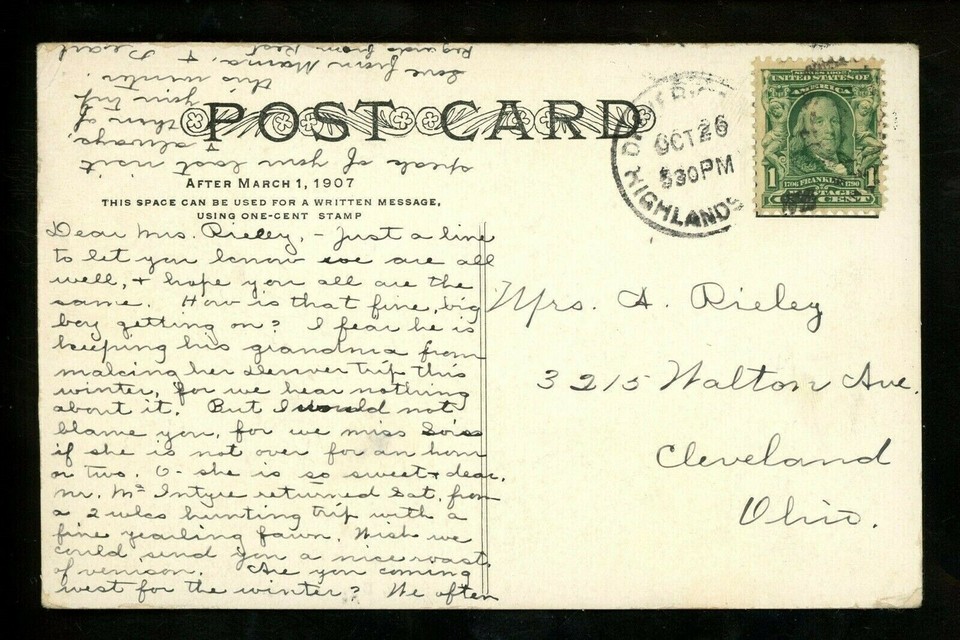 POST CARD
AFTER MARCH 1, 1907
THIS SPACE CAN BE USED FOR A WRITTEN MESSAGE,
USING ONE-CENT STAMP
Dear Mrs. Rieley, - Just a line
to let you know we are all
well, + hope you all are the
same. How is that fine, big
boy getting on? I fear he is
keeping his grandma from
making her Denver trip this
winter, for we hear nothing
about it. But I would not
blame you, for we miss Lois
if she is not over for an hour
or two. O- she is so sweet + dear.
Mr. Mc Intyre returned Sat. from
a 2 wks hunting trip with a
fine yearling fawn. Wish we
could send you a nice roast
of venison. Are you coming
west for the winter? We often
speak of your last visit
+ always
think of
your trip
this winter.
Love from Mama, +
Regards from Rest
OCT 26
530 PM
HIGHLANDS
SERIES 1902
UNITED STATES OF
AMERICA
1706 FRANKLIN 1790
1 POSTAGE 1
ONE CENT
Mrs. A. Rieley
3215 Walton Ave.
Cleveland
Ohio.